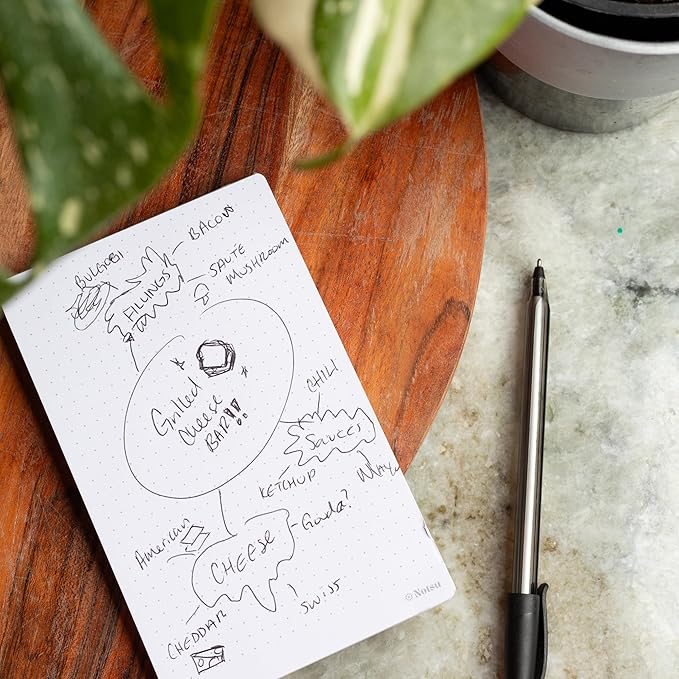 BACON
BULGOGI
SAUTE
MUSHROOM
FILLINGS
Grilled
Cheese
BAR!!
CHILI
SAUCES
KETCHUP
Mayo
American
Gouda?
CHEESE
SWISS
CHEDDAR
Notsu